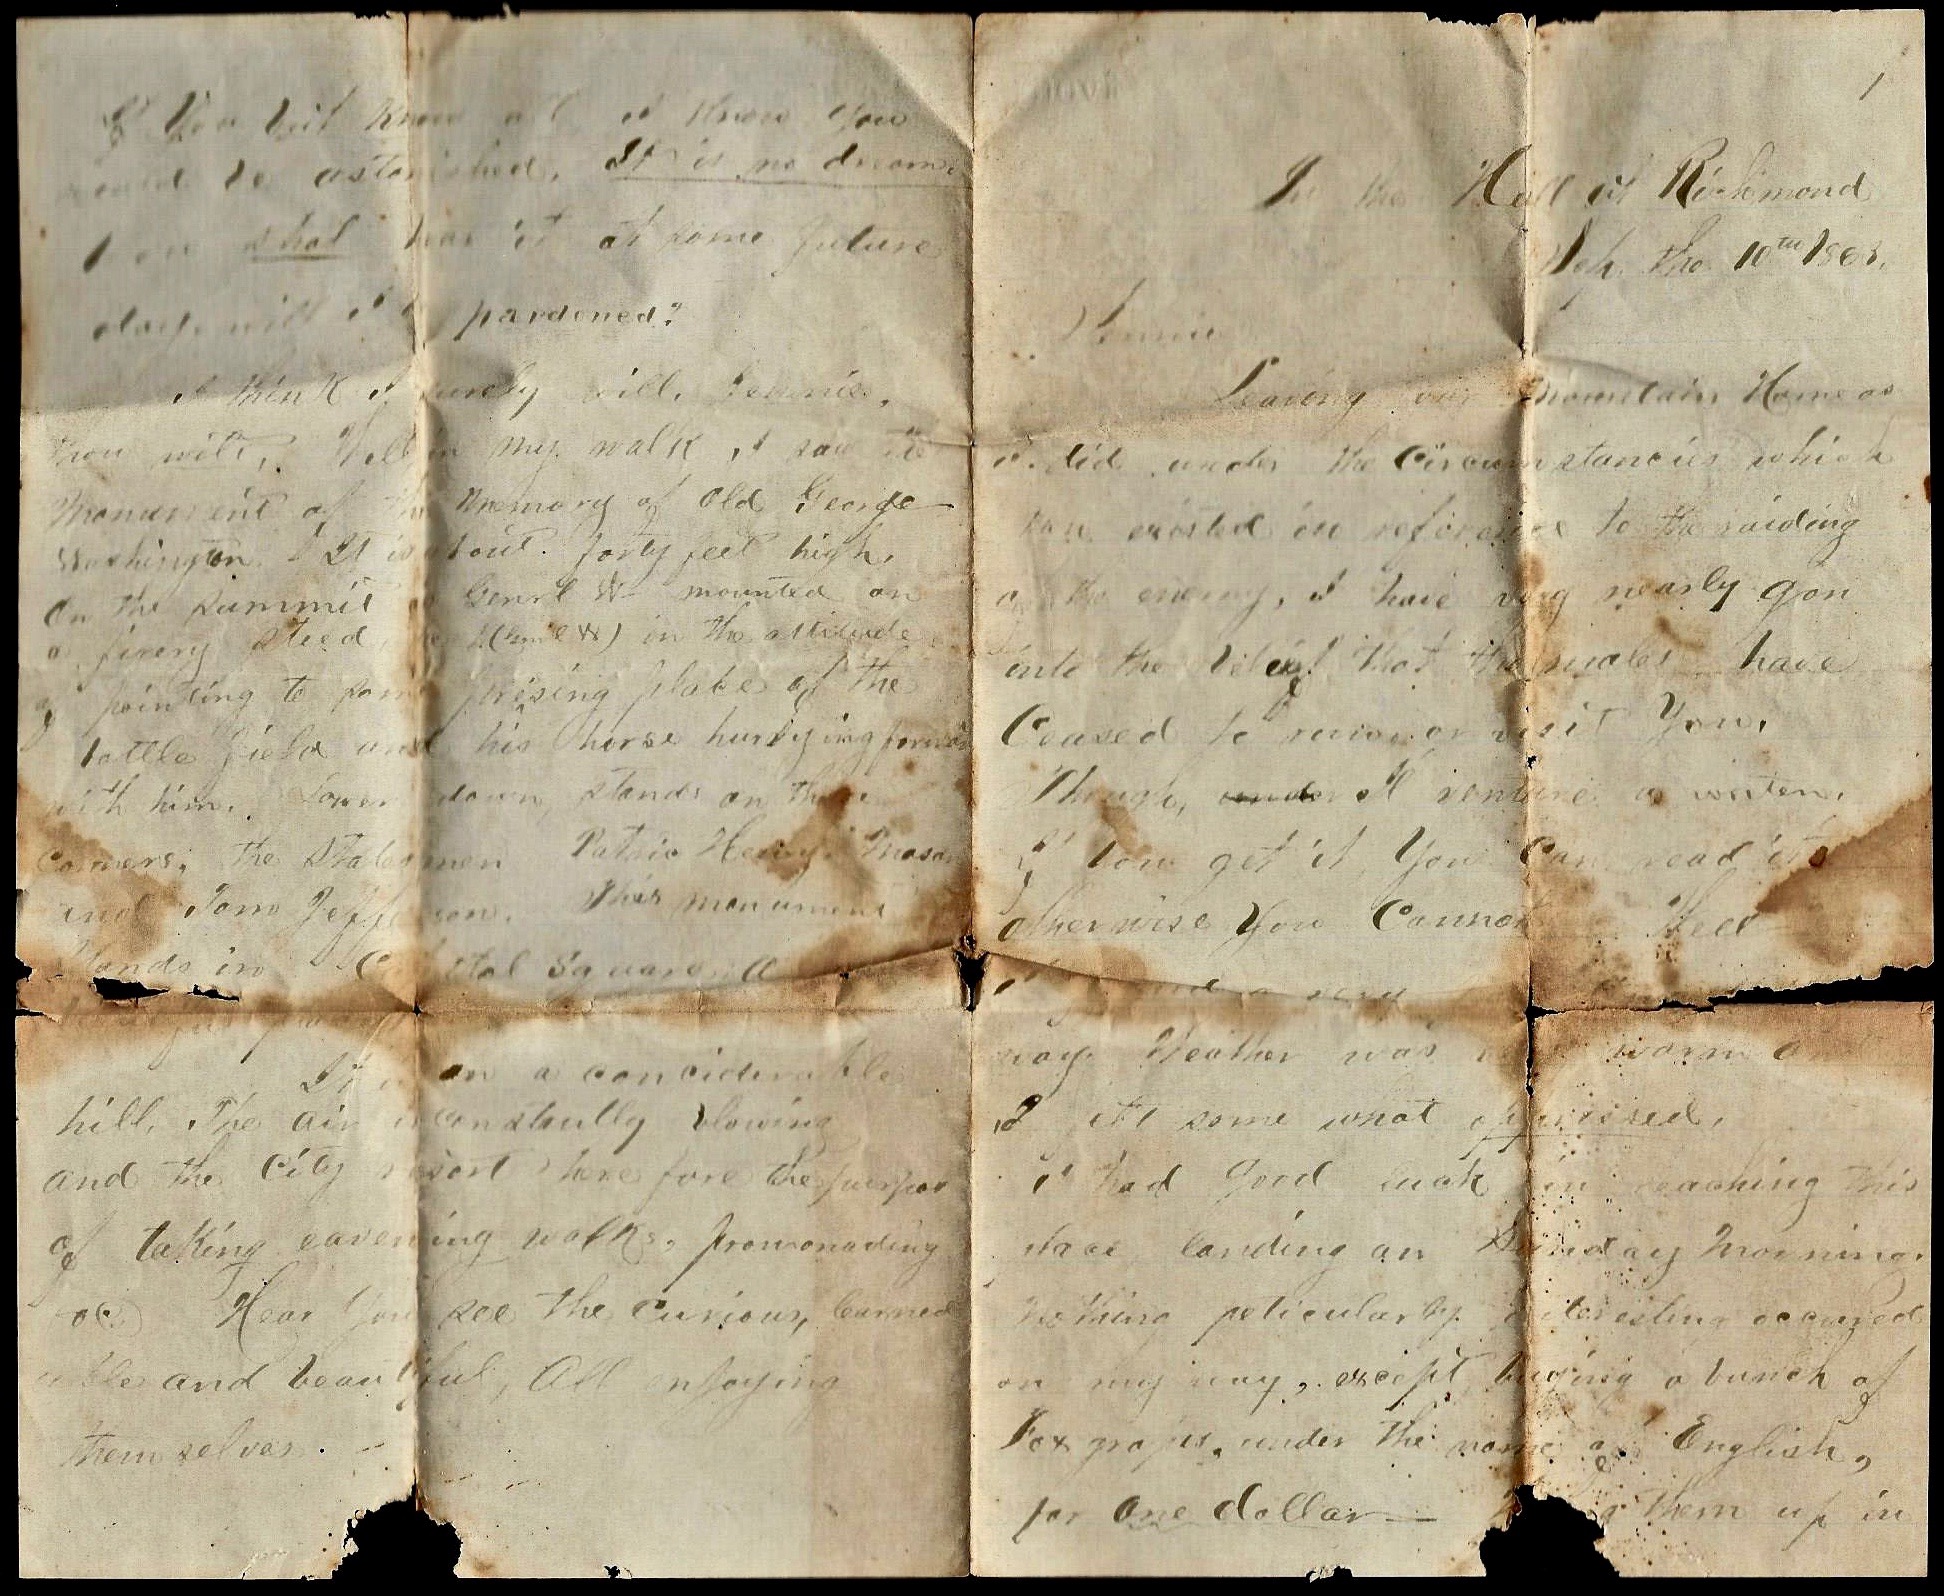 1
In the Hall at Richmond
Sep. the 10th 1863.
Jennie
Leaving our Mountain Home as
I did under the Circumstancies which
have existed in reference to the raiding
of the enemy, I have very nearly gon
into the belief that the males have
Ceased to or visit You.
Though, under I venture a writen.
If You get it, You Can read it
otherwise You Cannot. Well
I had a very
way. Weather was warm
I felt some what oppressed.
I had good luck in reaching this
place landing on Sunday Morning.
Nothing peticularly interesting occured
on my way, except buying a bunch of
Fox grapes, under the name of English,
for one dollar— them up in
If You but knew all I know You
would be astonished. It is no dream.
I on that hear it at some future
day. will I be pardoned?
I think I surely will, Jennie,
thou wilt. Well in my walk, I saw the
Monument of the Memory of Old George
Washington. It is about forty feet high.
On the summit is Genrl W mounted on
a firery steed, he (Genrl W) in the attitude
of pointing to some prising place of the
battle field and his horse hurrying forward
with him. Lower down, stands on three
Corners, the Statesmen Patric Henry, Mason
and Tom Jefferson. This monument
Stands in Capital Square. A
It is on a conciderable
hill. The air is constantly blowing
and the City resort here fore the purpos
of taking eavening walks, promonading
&c Hear You see the Curious, learned
noble and beautiful, All enjoying
themselves.